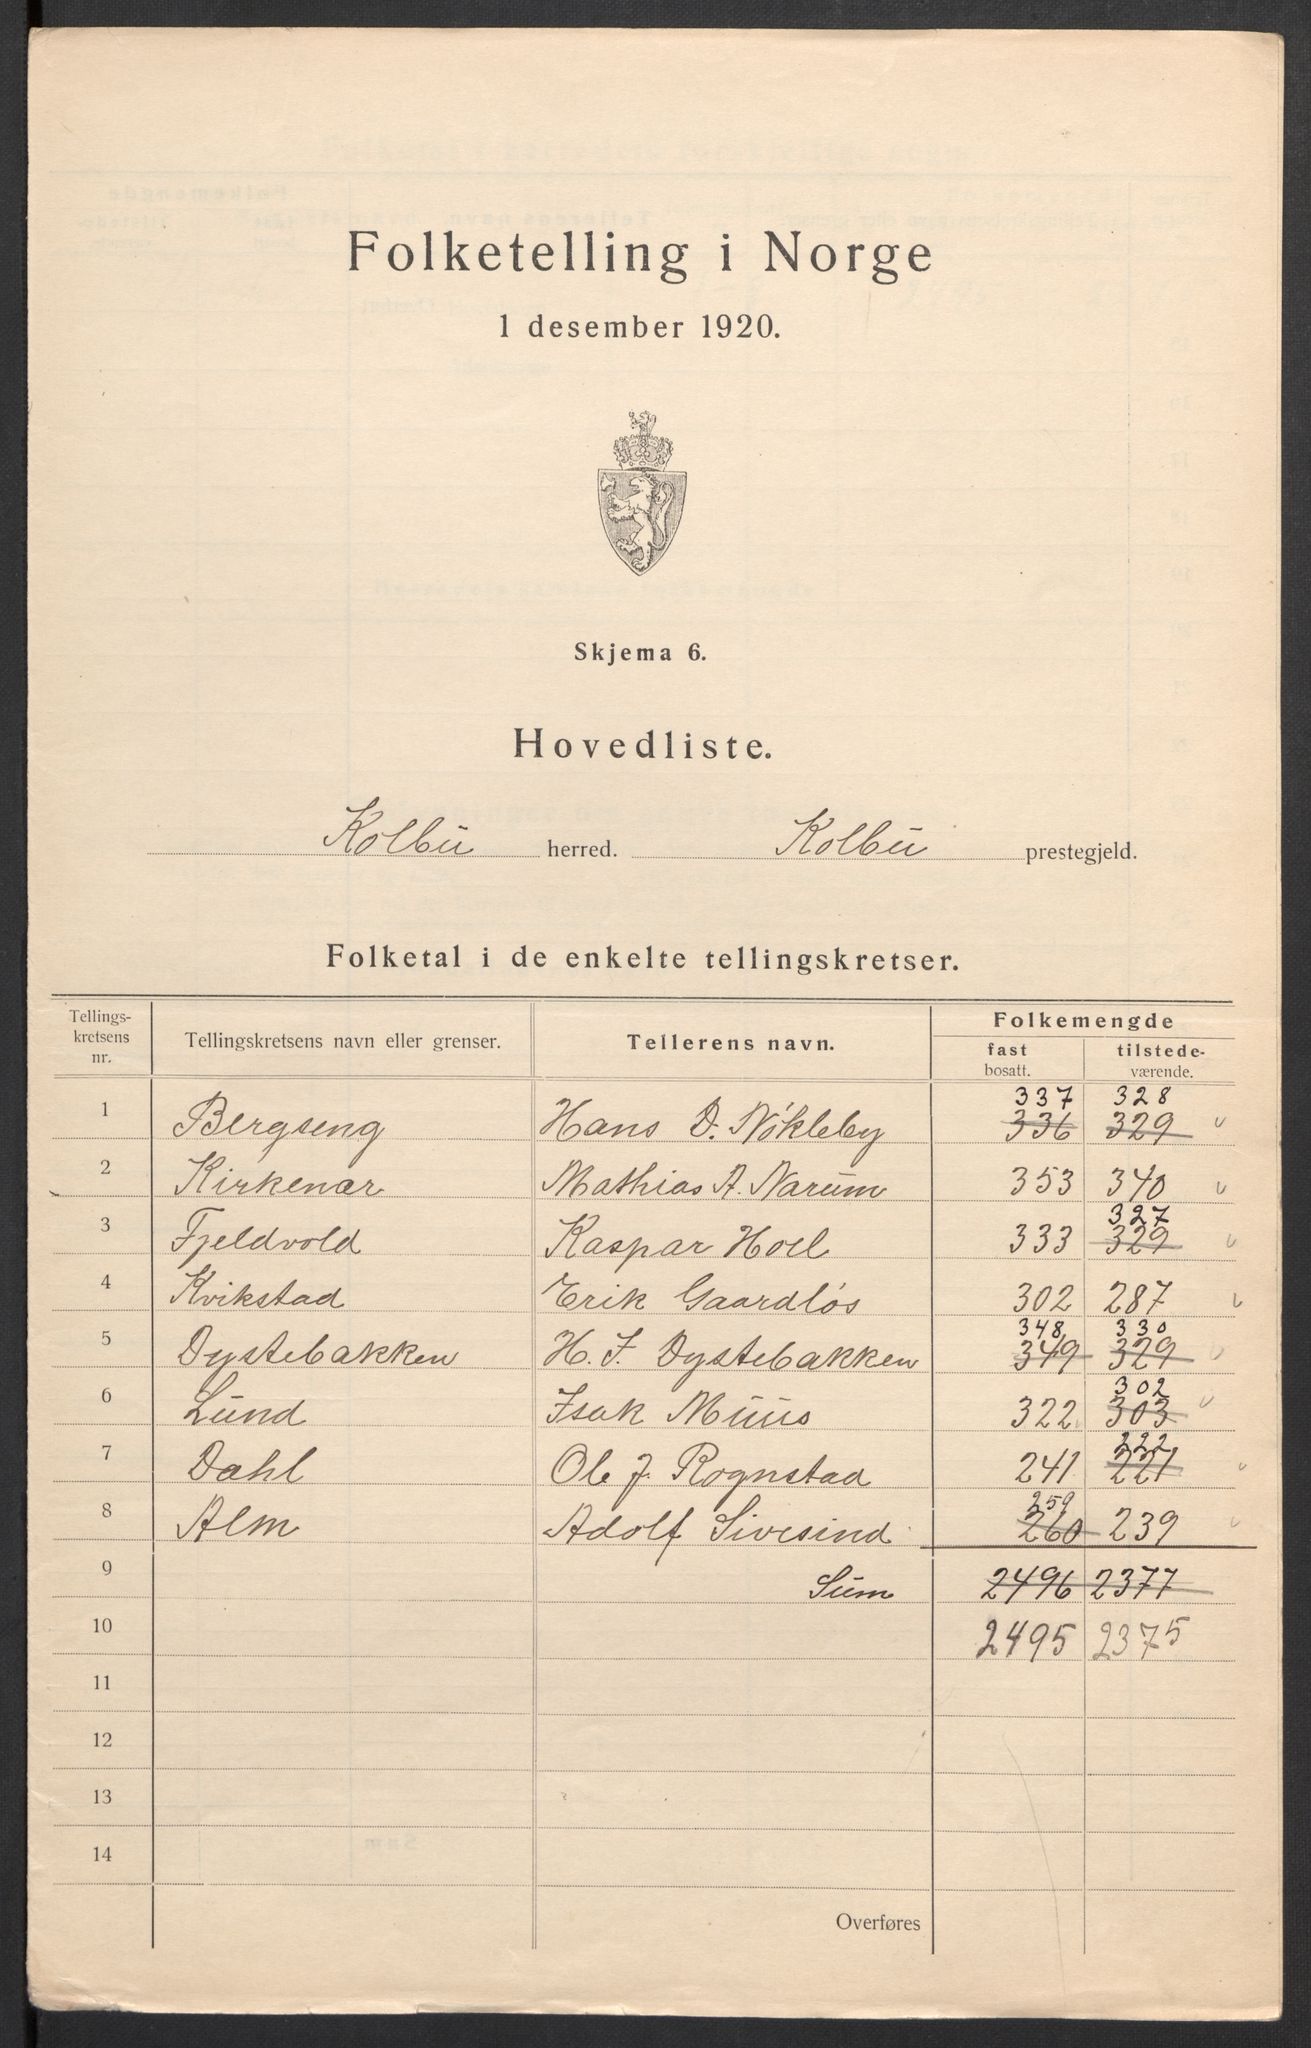 Folketelling i Norge
1 desember 1920.
Skjema 6.
Hovedliste.
Kolbu herred. Kolbu prestegjeld.
Folketal i de enkelte tellingskretser.
Tellings-
kretsens
nr.
Tellingskretsens navn eller grenser.
Tellerens navn.
Folkemengde
fast
bosatt.
tilstede-
værende.
337 328
1 Bergseng Hans D. Nökleby 336 329
2 Kirkenær Mathias A. Narum 353 340
327
3 Fjeldvold Kaspar Hoel 333 329
4 Kvikstad Erik Gaardlös 302 287
348 330
5 Dystebakken H. J. Dystebakken 349 329
302
6 Lund Isak Muus 322 303
222
7 Dahl Ole J. Rognstad 241 221
259
8 Alm Adolf Sivesind 260 239
9 Sum 2496 2377
10 2495 2375
11
12
13
14
Overføres